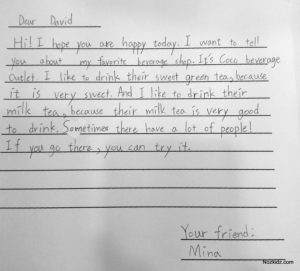 Dear David
Hi! I hope you are happy today. I want to tell
you about my favorite beverage shop. It's Coco beverage
Outlet. I like to drink their sweet green tea, because
it is very sweet. And I like to drink their
milk tea, because their milk tea is very good
to drink. Sometimes there have a lot of people!
If you go there, you can try it.
Your friend:
Mina
Nozkidz.com